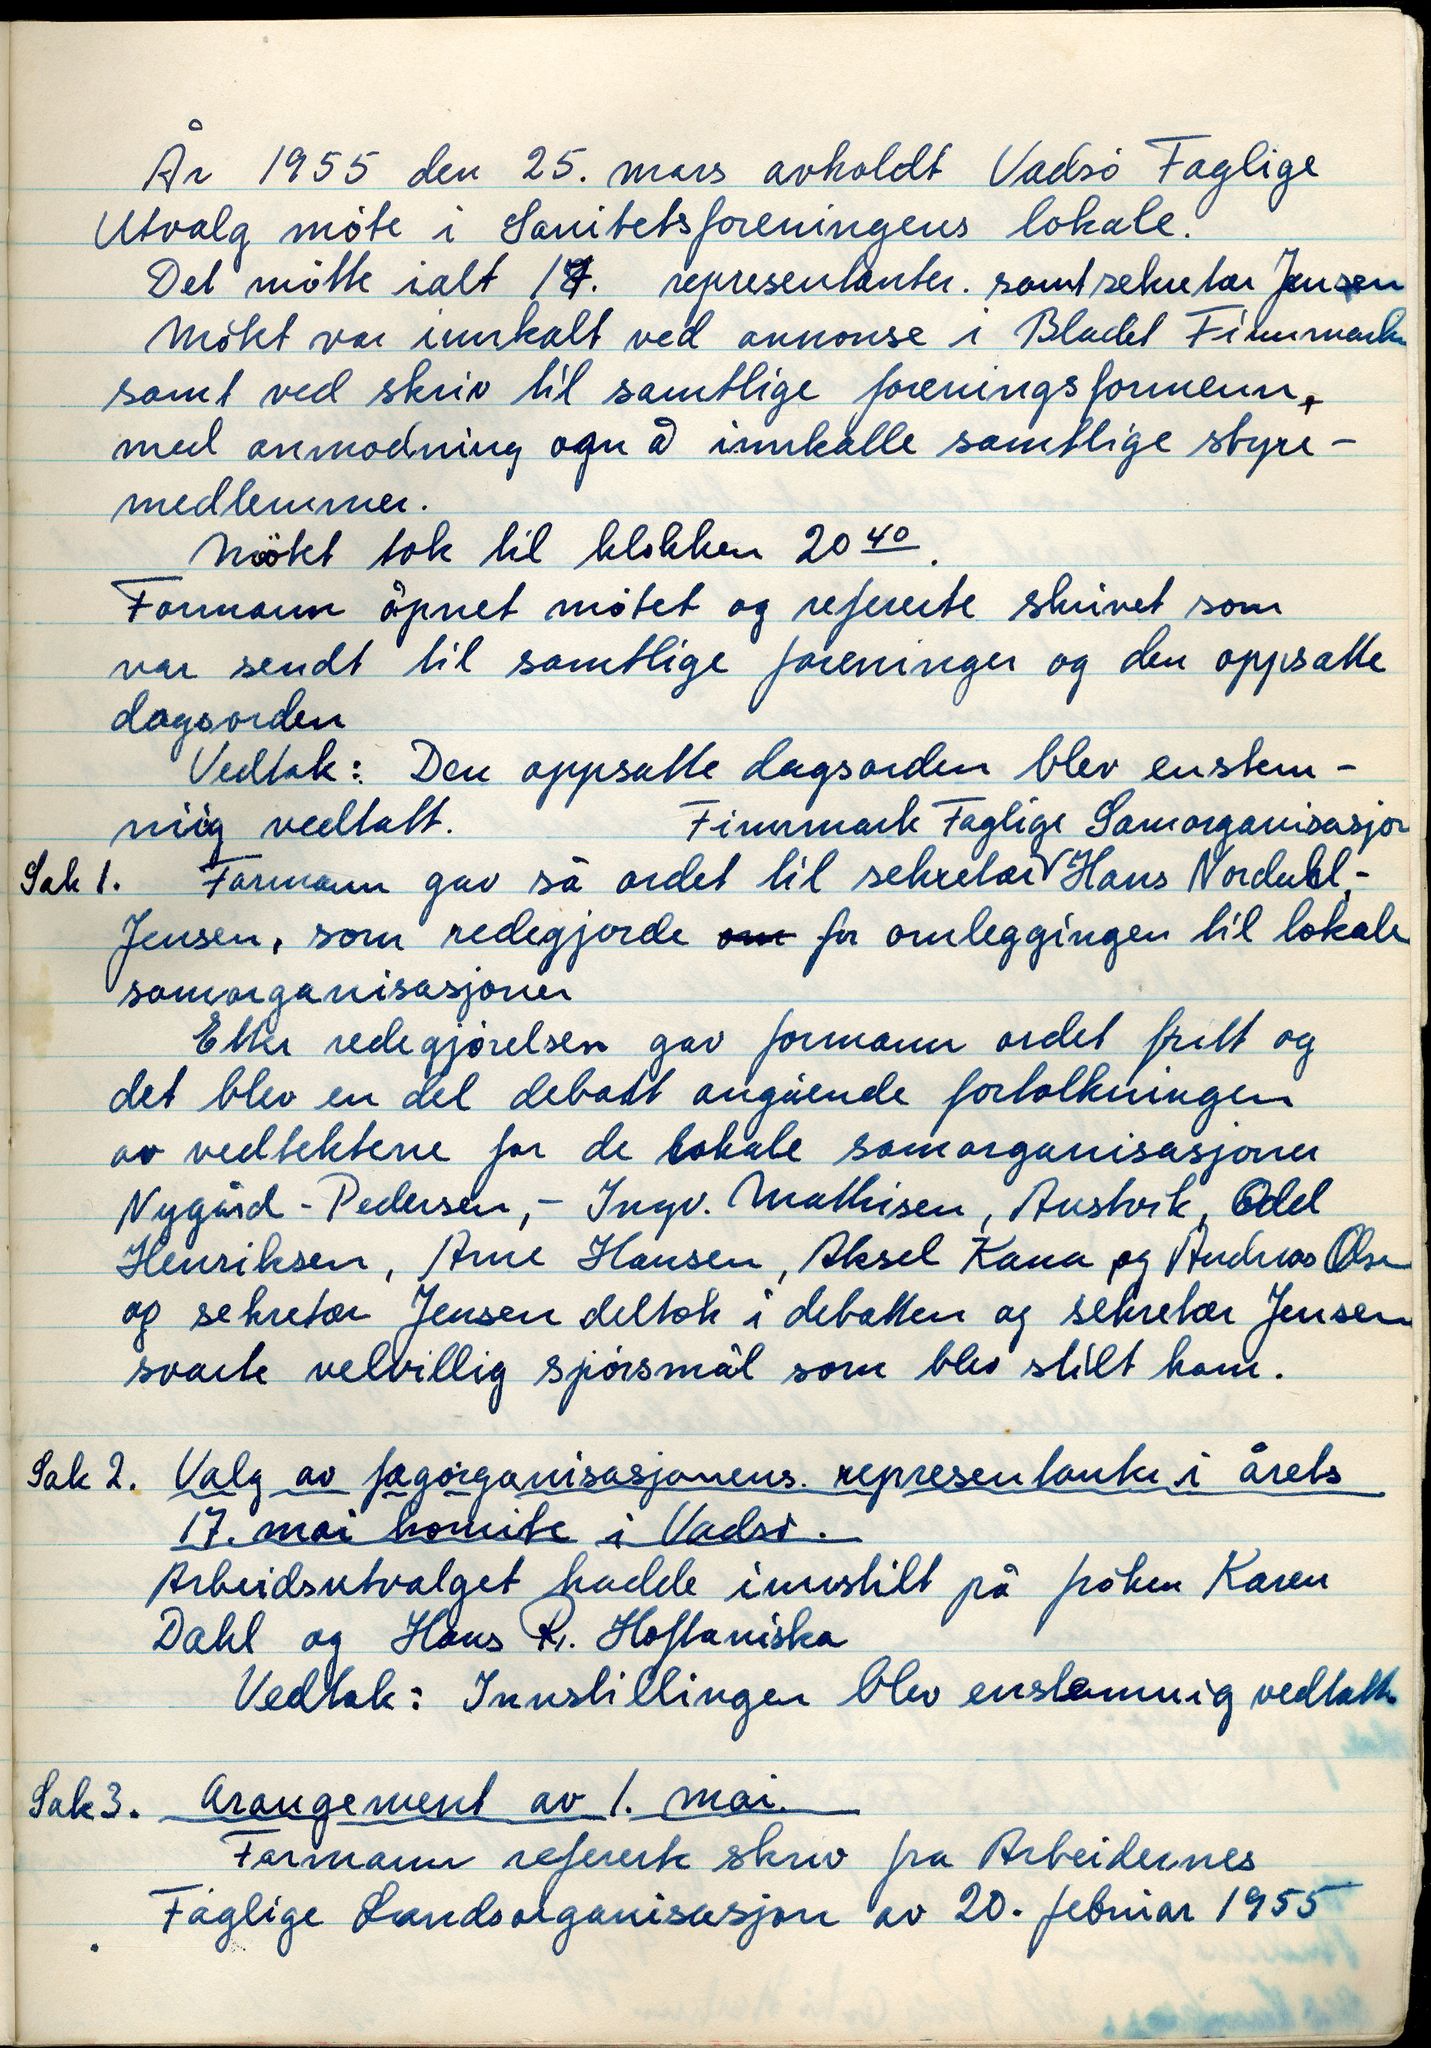 År 1955 den 25. mars avholdt Vadsø Faglige
Utvalg møte i Sanitetsforeningens lokale.
Det møtte ialt 17. representanter. samt sekretær Jensen
Møtet var innkalt ved annonse i Bladet Finnmark
samt ved skriv til samtlige foreningsformenn,
med anmodning om å innkalle samtlige styre-
medlemmer.
Møtet tok til klokken 20 40.
Formann åpnet møtet og refererte skrivet som
var sendt til samtlige foreninger og den oppsatte
dagsorden
Vedtak: Den oppsatte dagsorden blev enstem-
mig vedtatt. Finnmark Faglige Samorganisasjon
Sak 1. Formann gav så ordet til sekretær V Hans Nordahl-
Jensen, som redegjorde om for omleggingen til lokale
samorganisasjoner
Etter redegjørelsen gav formann ordet fritt og
det blev en del debatt angående fortolkningen
av vedtektene for de lokale samorganisasjoner
Nygård-Pedersen,- Ingv. Mathisen, Austvik, Odd
Henriksen, Arne Hansen, Aksel Kana og Andreas Olsen
og sekretær Jensen deltok i debatten og sekretær Jensen
svarte velvillig spørsmål som blev stilt ham.
Sak 2. Valg av fagorganisasjonens representanter i årets
17. mai komite i Vadsø.
Arbeidsutvalget hadde innstilt på frøken Karen
Dahl og Hans R. Hoftaniska
Vedtak: Innstillingen blev enstemmig vedtatt
Sak 3. Arangement av 1. mai.
Formann refererte skriv fra Arbeidernes
Faglige Landsorganisasjon av 20. februar 1955